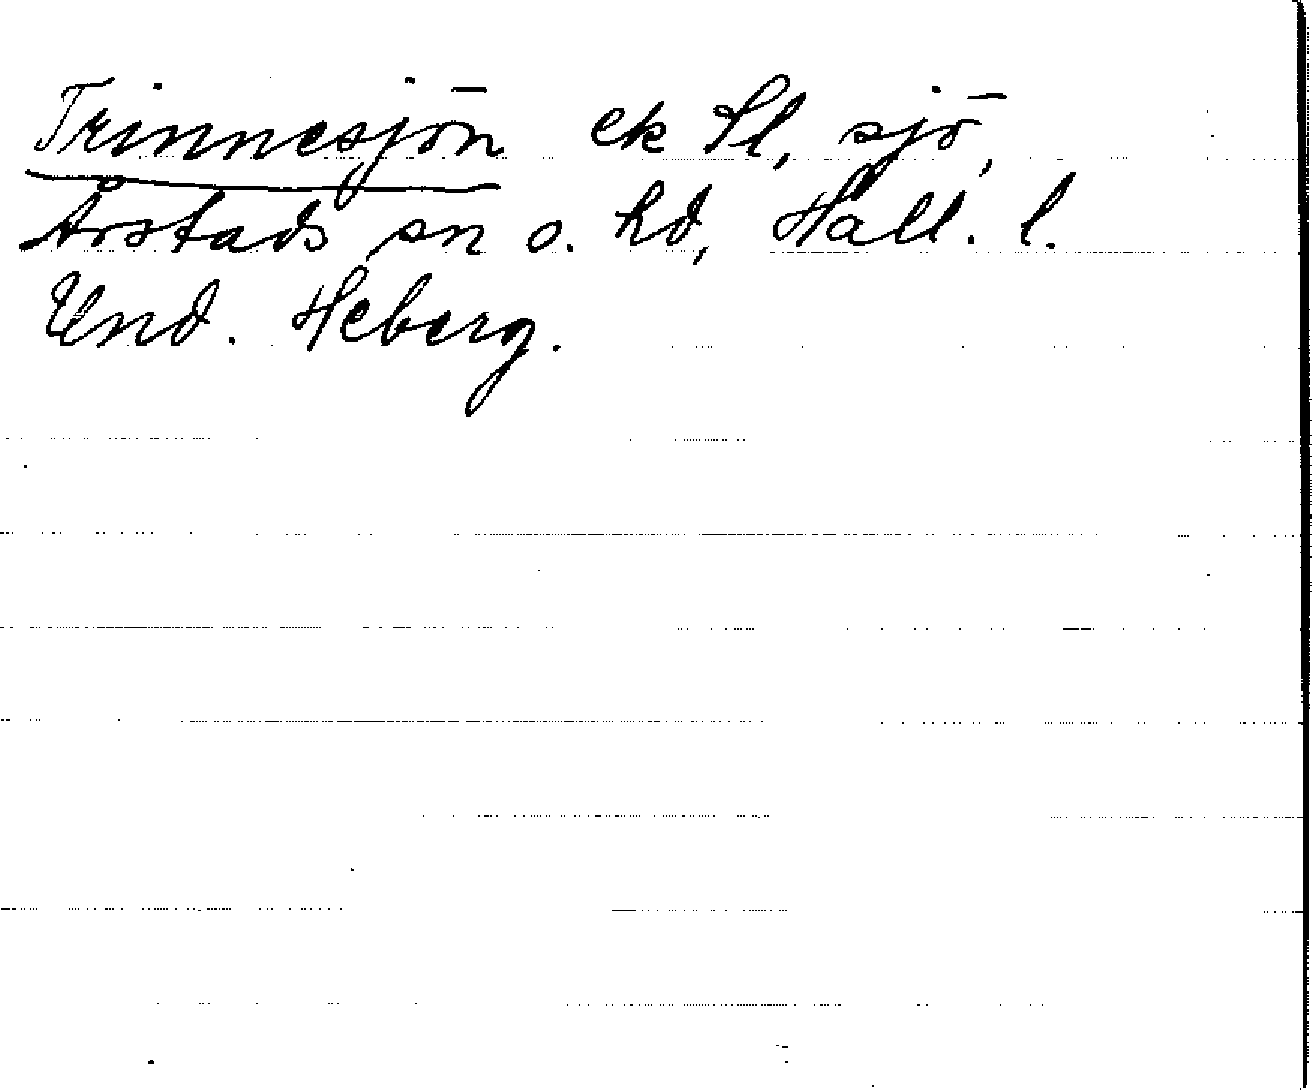 Trinnesjön ek Sl, sjö,
Årstads sn o. hd, Hall. l.
Und. Heberg.